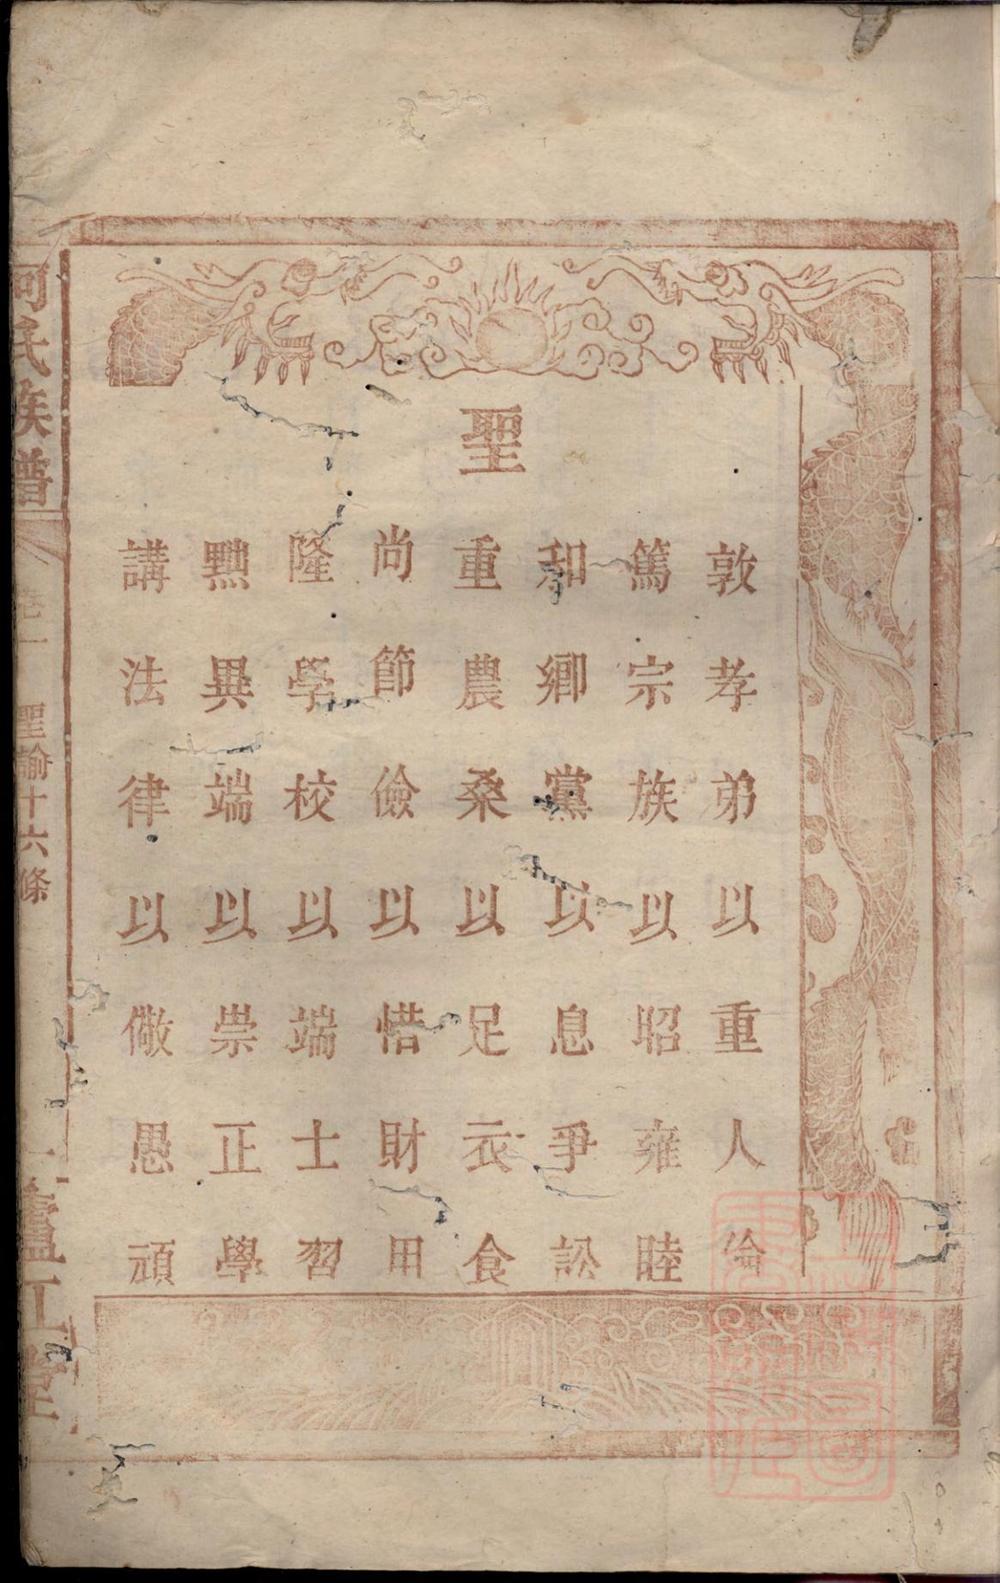 聖
敦孝弟以重人倫
篤宗族以昭雍睦
和鄉黨以息爭訟
重農桑以足衣食
尚節儉以惜財用
隆學校以端士習
黜異端以崇正學
講法律以儆愚頑
何氏族譜
卷一
聖諭十六條
一
廬江堂